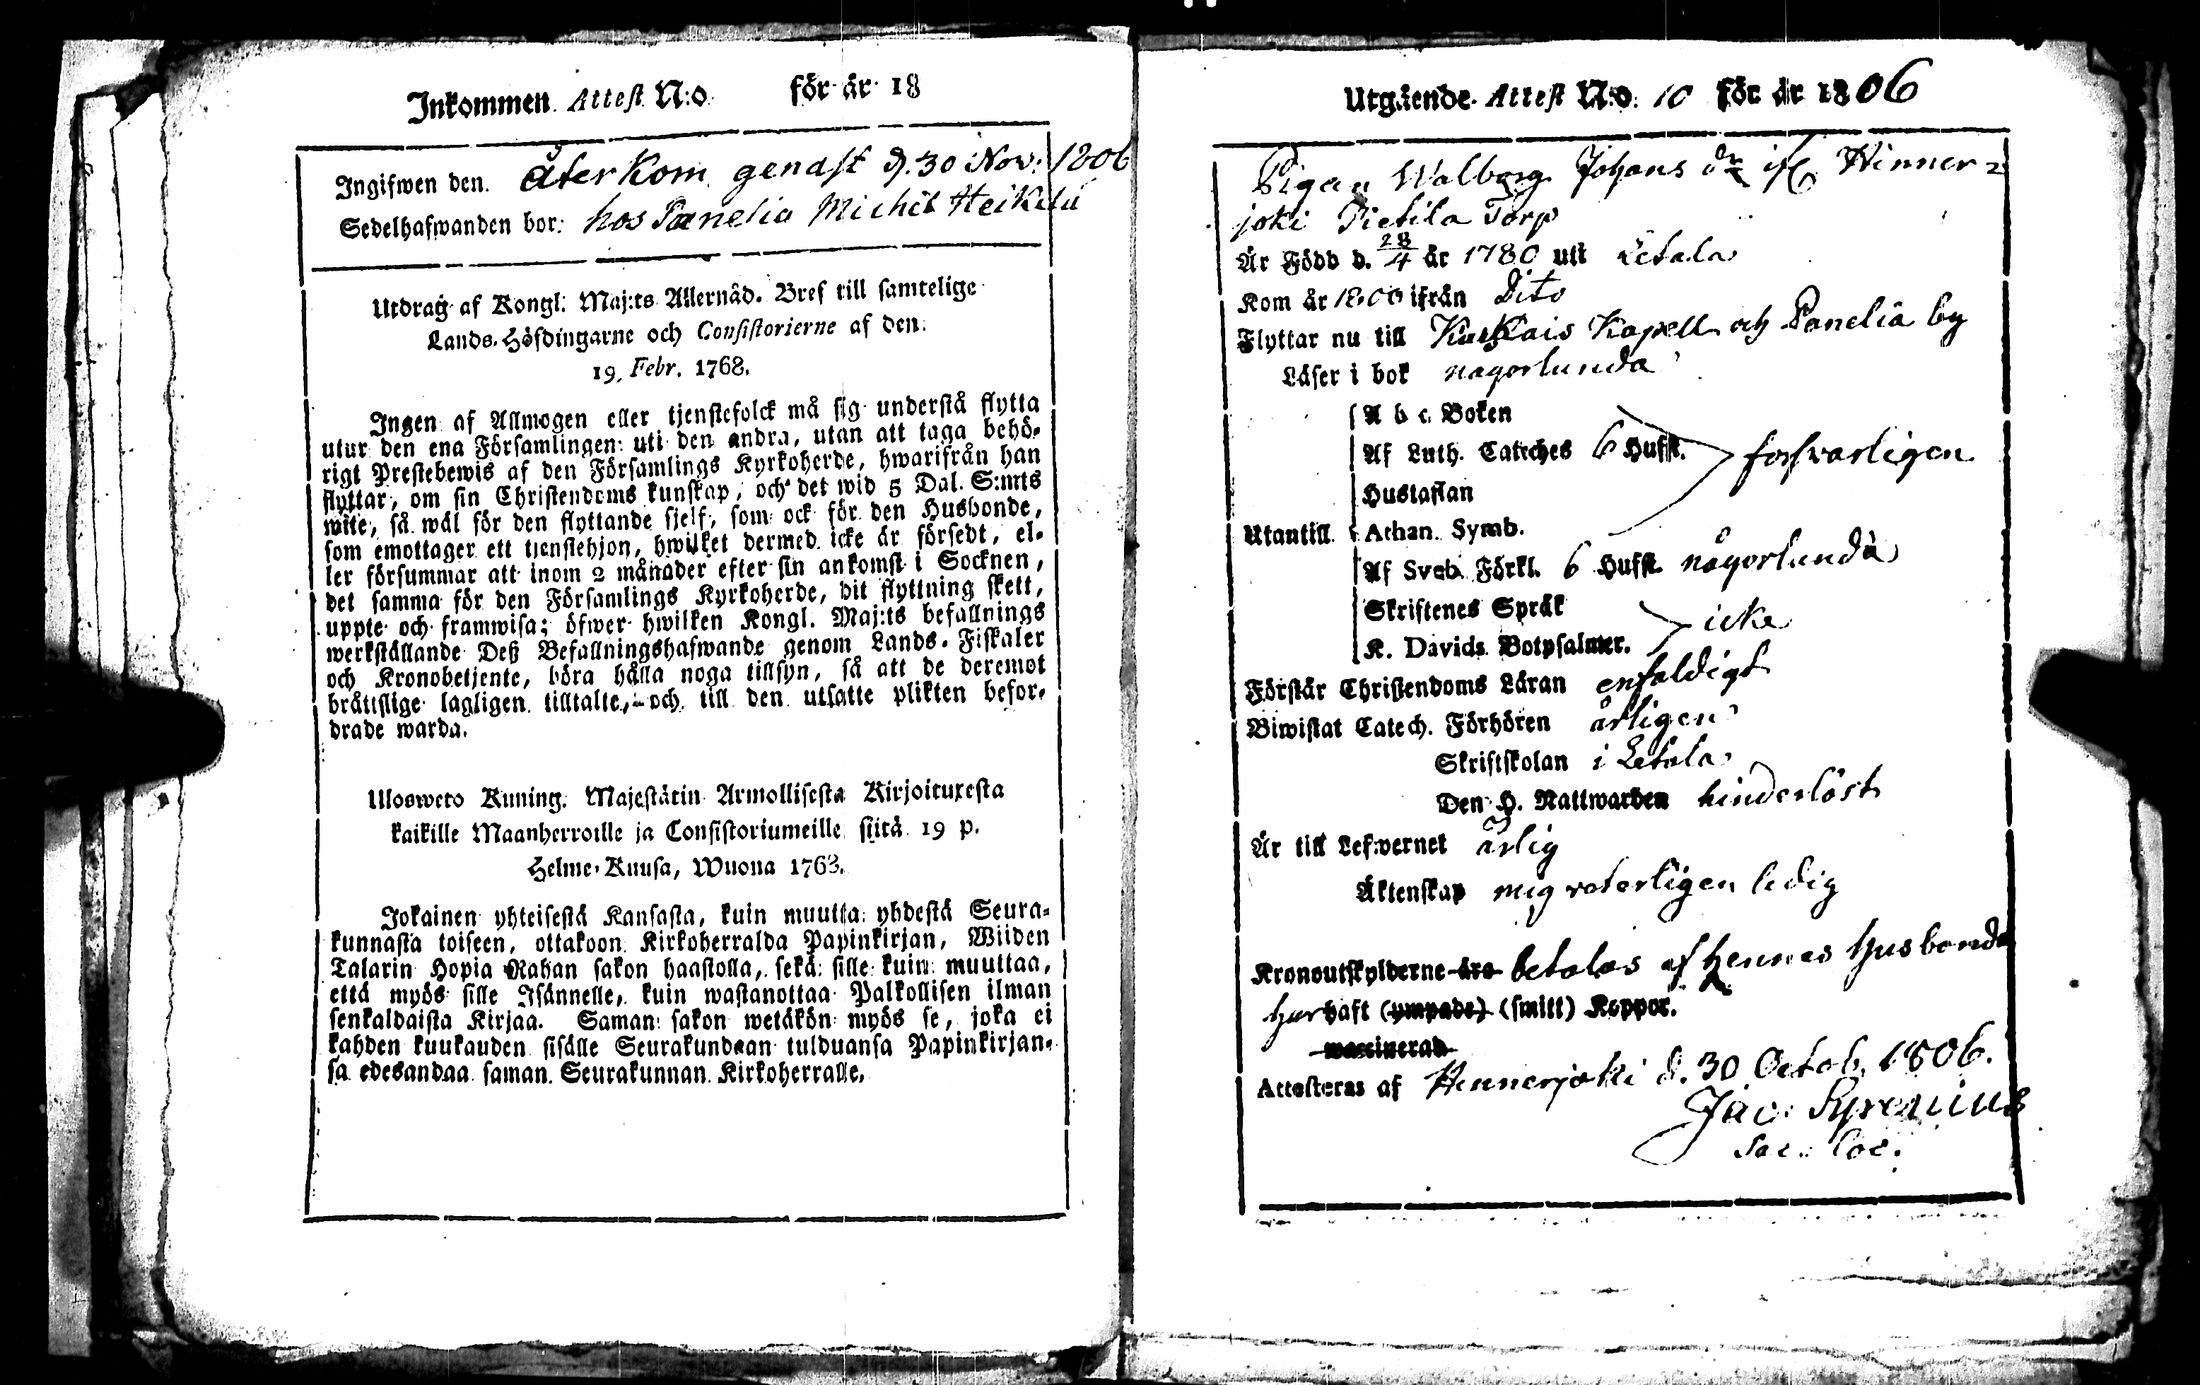 Inkommen Attest N:o för år 18
Ingifwen den. återkom genast d. 30 Nov: 1806
Sedelhafwanden bor: hos Panelia Michil Heikilä
Utdrag af Kongl. Maj:ts Allernåd. Bref till samtelige
Lands-Höfdingarne och Consistorierne af den
19. Febr. 1768.
Ingen af Allmogen eller tjenstefolck må sig understå flytta
utur den ena Församlingen uti den andra, utan att taga behö-
rigt Prestebewis af den Församlings Kyrkoherde, hwarifrån han
flyttar, om sin Christendoms kunskap, och det wid 5 Dal. S:mts
wite, så wäl för den flyttande sjelf, som ock för den Husbonde,
som emottager ett tjenstehjon, hwilket dermed icke är försedt, el-
ler försummar att inom 2 månader efter sin ankomst i Socknen,
det samma för den Församlings Kyrkoherde, dit flyttning skett,
uppte och framwisa; öfwer hwilken Kongl. Maj:ts befallnings
werkställande Deß Befallningshafwande genom Lands-Fiskaler
och Kronobetjente, böra hålla noga tillsyn, så att de deremot
bråttslige lagligen tilltalte, och till den utsatte plikten befor-
drade warda.
Ulosweto Kuning. Majestätin Armollisesta Kirjoituxesta
kaikille Maanherroille ja Consistoriumeille siitä 19 p.
Helme-Kuusa, Wuona 1768.
Jokainen yhteisestä Kansasta, kuin muutta yhdestä Seura-
kunnasta toiseen, ottakoon Kirkoherralda Papinkirjan, Wiiden
Talarin Hopia Rahan sakon haastolla, sekä sille kuin muuttaa,
että myös sille Isännelle, kuin wastanottaa Palkollisen ilman
senkaldaista Kirjaa. Saman sakon wetäkön myös se, joka ei
kahden kuukauden sisälle Seurakundaan tulduansa Papinkirjan-
sa edesandaa saman Seurakunnan Kirkoherralle.
Utgående Attest N:o. 10 för år 1806
Pigan Walborg Johans dr if Hinner=
joki Pietila Torp
Är Född d. 28/4 år 1780 uti Letala
Kom år 1800 ifrån Dito
Flyttar nu till Kapell och Panelia by
Läser i bok någorlunda
A b c Boken
Af Luth. Cateches 6 Hufst. forsvarligen
Hustaflan
Utantill Athan. Symb.
Af Sveb. Förkl. 6 Hufst. någorlunda
Skriftenes Språk
K. Davids Botpsalmer. icke
Förstår Christendoms Läran enfaldigt
Biwistat Catech. Förhören årligen
Skriftskolan i Letala
Den H. Nattwarden hinderlöst
Är till Lefwernet ärlig
Äktenskap mig veterligen ledig
Kronoutskylderne äro betalas af hennes husbonde
har haft (ympade) (smitt) Koppor.
waccinerad
Attesteras af Hinnerjoki d. 30 Octob. 1806.
Jac. Pyrenius
Sac. Loc.